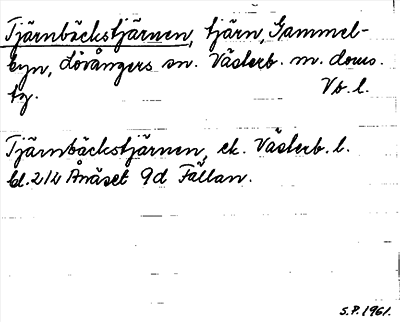 Tjärnbäckstjärnen, tjärn, Gammel-
byn, Lövångers sn. Västerb. m. doms.
tg. Vb. l.
Tjärnbäckstjärnen, ek. Västerb. l.
bl. 212 Ånäset 9d Fällan.
S.P. 1961.